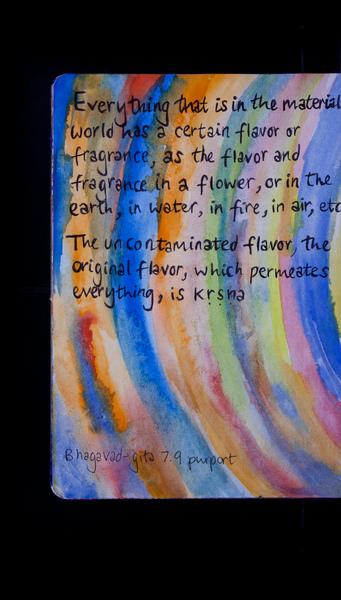 Everything that is in the material
world has a certain flavor or
fragrance, as the flavor and
fragrance in a flower, or in the
earth, in water, in fire, in air, etc
The uncontaminated flavor, the
original flavor, which permeates
everything, is Kṛṣṇa
Bhagavad-gita 7.9 purport